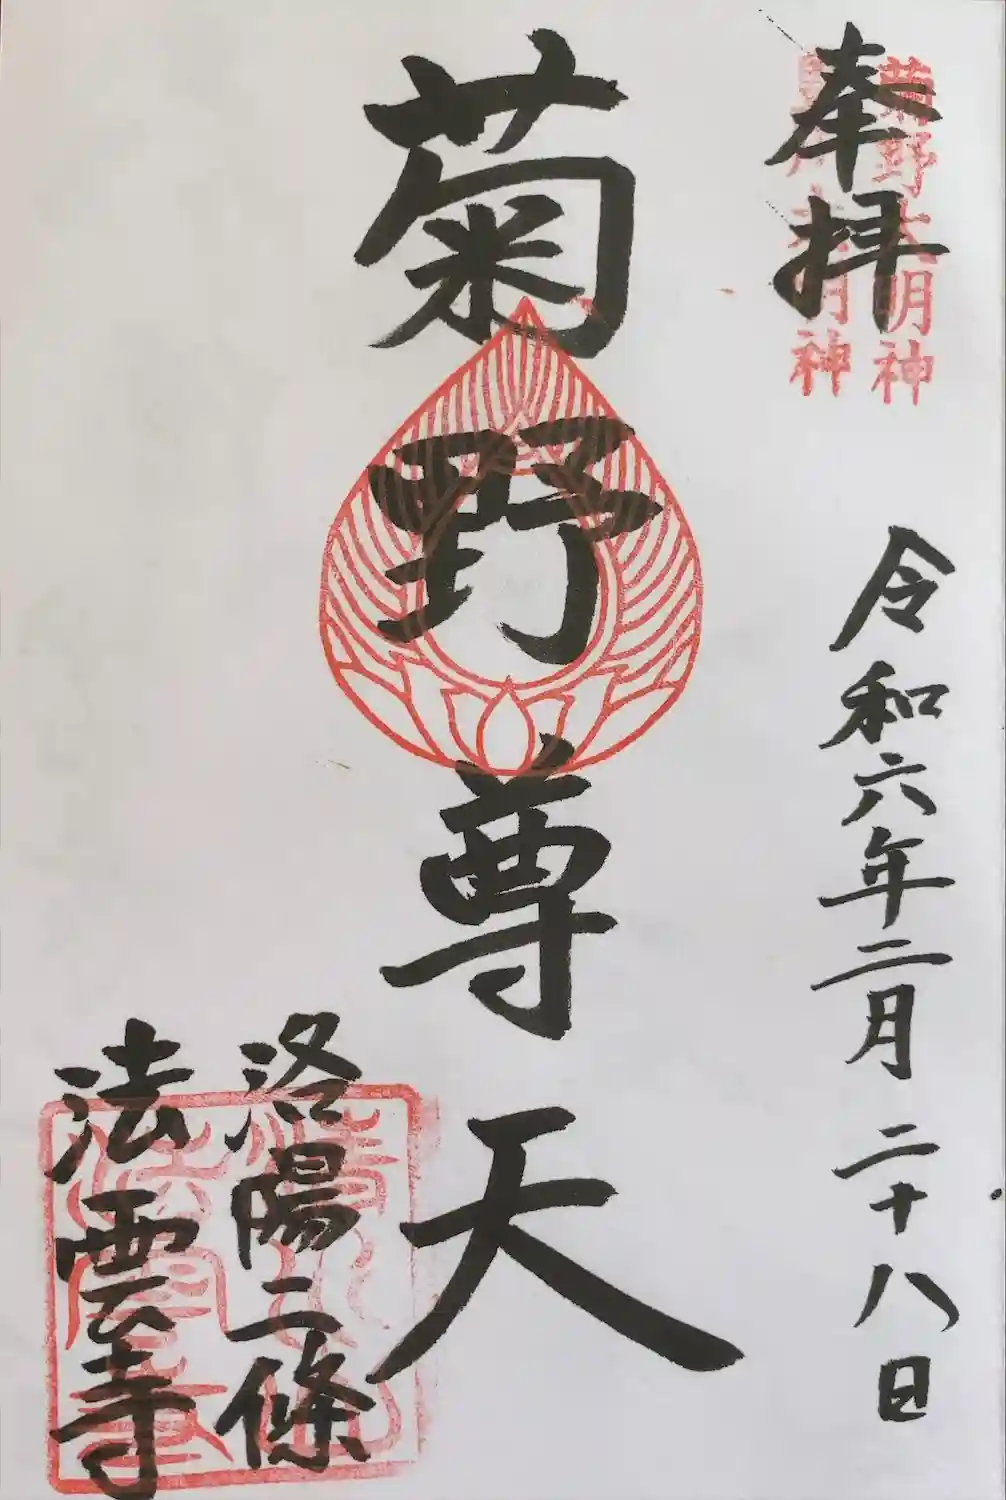 奉拝
菊野大明神
明神
令和六年二月二十八日
菊野尊天
洛陽二條
法雲寺
清水山
法雲寺